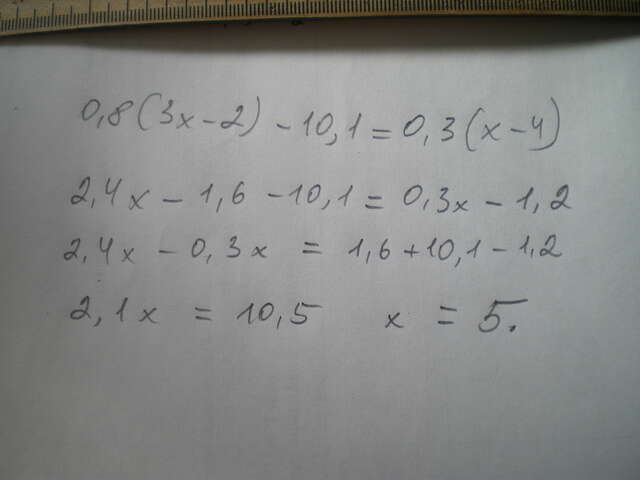 0,8(3x-2)-10,1=0,3(x-4)
2,4x-1,6-10,1=0,3x-1,2
2,4x-0,3x=1,6+10,1-1,2
2,1x=10,5 x=5.